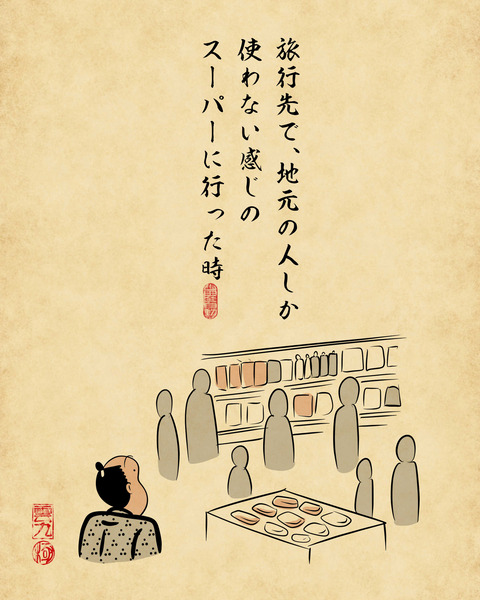 旅行先で、地元の人しか
使わない感じの
スーパーに行った時